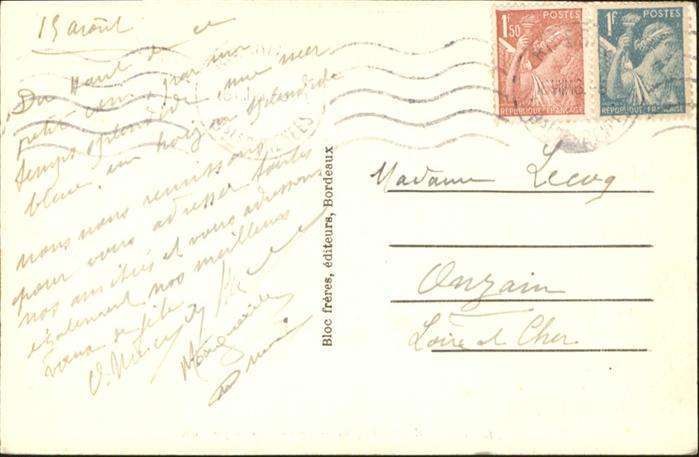 15 août
Du Haut de ce
petit coin, par un
temps splendide, une mer
bleue, un horizon splendide
nous nous réunissons
pour vous adresser toutes
nos amitiés et vous adressons
également nos meilleurs
vœux de fête
Marguerite
Bloc frères, éditeurs, Bordeaux
1F50
POSTES
RÉPUBLIQUE FRANÇAISE
1F
POSTES
RÉPUBLIQUE FRANÇAISE
Madame Lecoq
Onzain
Loire et Cher